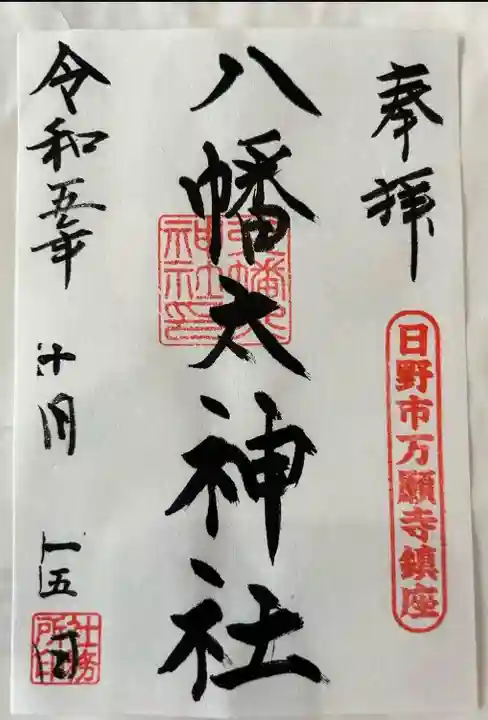 奉拝
日野市万願寺鎮座
八幡大神社
令和五年 十月 十五日
社務所印